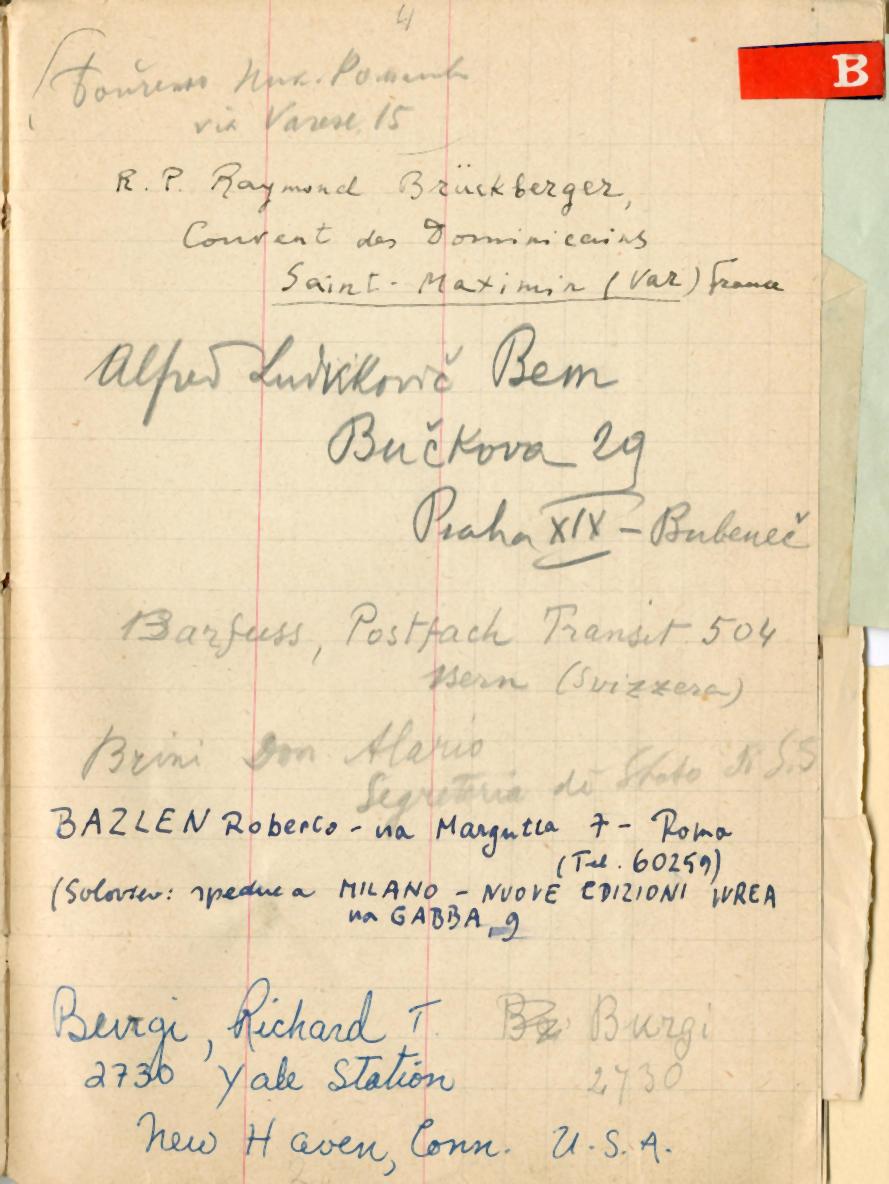 4
B
Ник. Романов
via Varese 15
R. P. Raymond Brückberger,
Couvent des Dominicains
Saint-Maximin (Var) France
Alfred Ludvikovič Bem
Bučkova 29
Praha XIX - Bubeneč
Barfuss, Postfach Transit 504
Bern (Svizzera)
Brini Don Mario
Segreteria di Stato di S.S
BAZLEN Roberto - via Margutta 7 - Roma
(Tel. 60259)
(Soloviev: spedire a MILANO - NUOVE EDIZIONI IVREA
via GABBA, 9
Beurgi, Richard T. Burgi
2730 Yale Station 2730
New Haven, Conn. U.S.A.